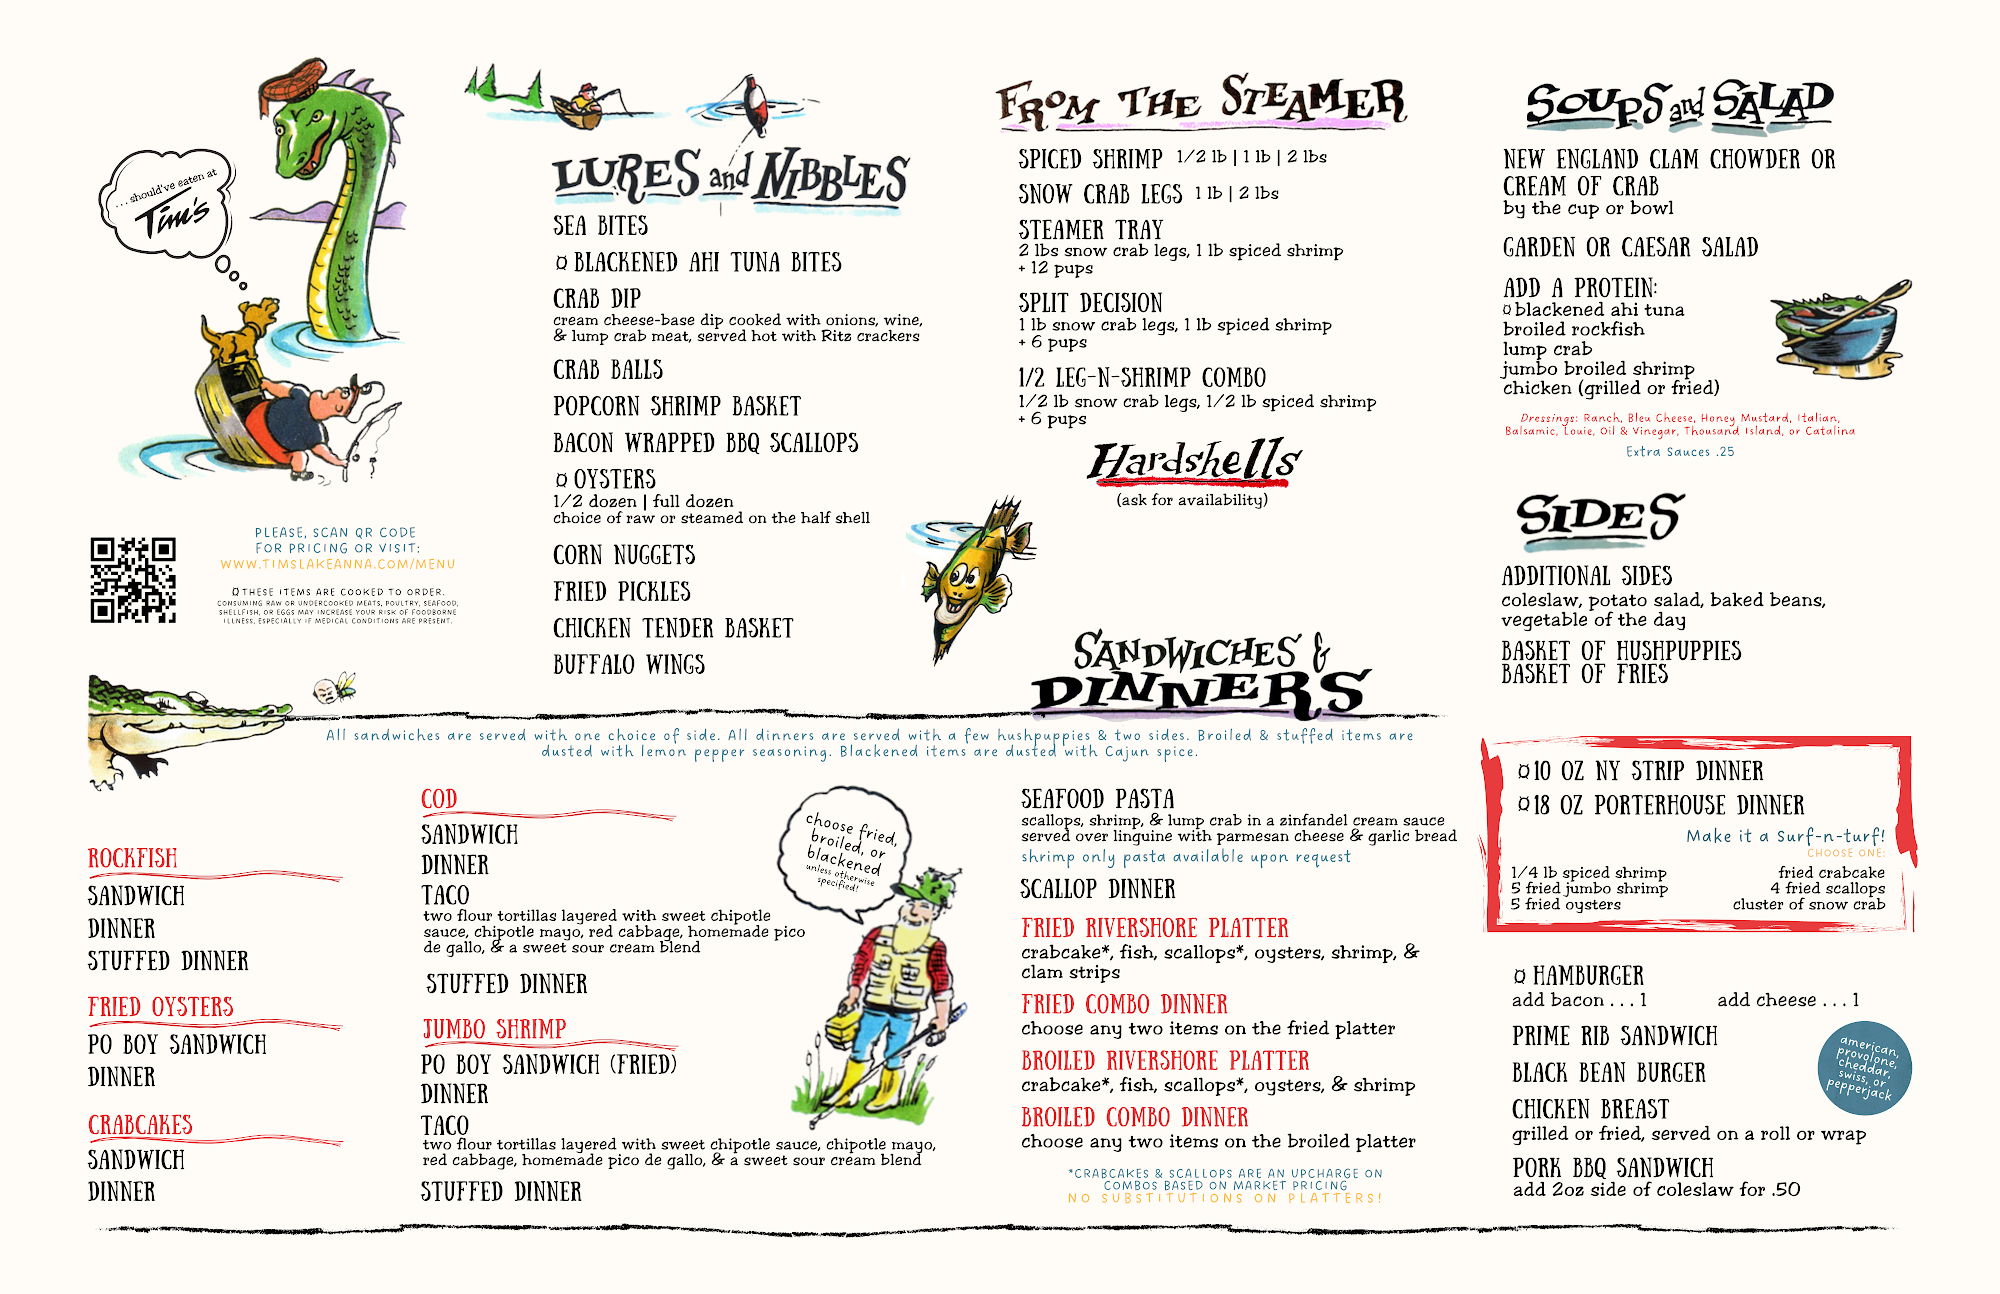 ... should've eaten at
Tim's
PLEASE, SCAN QR CODE
FOR PRICING OR VISIT:
WWW.TIMSLAKEANNA.COM/MENU
¤THESE ITEMS ARE COOKED TO ORDER.
CONSUMING RAW OR UNDERCOOKED MEATS, POULTRY, SEAFOOD,
SHELLFISH, OR EGGS MAY INCREASE YOUR RISK OF FOODBORNE
ILLNESS, ESPECIALLY IF MEDICAL CONDITIONS ARE PRESENT.
LURES and NIBBLES
SEA BITES
¤ BLACKENED AHI TUNA BITES
CRAB DIP
cream cheese-base dip cooked with onions, wine,
& lump crab meat, served hot with Ritz crackers
CRAB BALLS
POPCORN SHRIMP BASKET
BACON WRAPPED BBQ SCALLOPS
¤ OYSTERS
1/2 dozen | full dozen
choice of raw or steamed on the half shell
CORN NUGGETS
FRIED PICKLES
CHICKEN TENDER BASKET
BUFFALO WINGS
FROM THE STEAMER
SPICED SHRIMP 1/2 lb | 1 lb | 2 lbs
SNOW CRAB LEGS 1 lb | 2 lbs
STEAMER TRAY
2 lbs snow crab legs, 1 lb spiced shrimp
+ 12 pups
SPLIT DECISION
1 lb snow crab legs, 1 lb spiced shrimp
+ 6 pups
1/2 LEG-N-SHRIMP COMBO
1/2 lb snow crab legs, 1/2 lb spiced shrimp
+ 6 pups
Hardshells
(ask for availability)
SOUPS and SALAD
NEW ENGLAND CLAM CHOWDER OR
CREAM OF CRAB
by the cup or bowl
GARDEN OR CAESAR SALAD
ADD A PROTEIN:
¤ blackened ahi tuna
broiled rockfish
lump crab
jumbo broiled shrimp
chicken (grilled or fried)
Dressings: Ranch, Bleu Cheese, Honey Mustard, Italian,
Balsamic, Louie, Oil & Vinegar, Thousand Island, or Catalina
Extra Sauces .25
SIDES
ADDITIONAL SIDES
coleslaw, potato salad, baked beans,
vegetable of the day
BASKET OF HUSHPUPPIES
BASKET OF FRIES
SANDWICHES &
DINNERS
All sandwiches are served with one choice of side. All dinners are served with a few hushpuppies & two sides. Broiled & stuffed items are
dusted with lemon pepper seasoning. Blackened items are dusted with Cajun spice.
ROCKFISH
SANDWICH
DINNER
STUFFED DINNER
FRIED OYSTERS
PO BOY SANDWICH
DINNER
CRABCAKES
SANDWICH
DINNER
COD
SANDWICH
DINNER
TACO
two flour tortillas layered with sweet chipotle
sauce, chipotle mayo, red cabbage, homemade pico
de gallo, & a sweet sour cream blend
STUFFED DINNER
JUMBO SHRIMP
PO BOY SANDWICH (FRIED)
DINNER
TACO
two flour tortillas layered with sweet chipotle sauce, chipotle mayo,
red cabbage, homemade pico de gallo, & a sweet sour cream blend
STUFFED DINNER
choose fried,
broiled, or
blackened
unless otherwise
specified!
SEAFOOD PASTA
scallops, shrimp, & lump crab in a zinfandel cream sauce
served over linguine with parmesan cheese & garlic bread
shrimp only pasta available upon request
SCALLOP DINNER
FRIED RIVERSHORE PLATTER
crabcake*, fish, scallops*, oysters, shrimp, &
clam strips
FRIED COMBO DINNER
choose any two items on the fried platter
BROILED RIVERSHORE PLATTER
crabcake*, fish, scallops*, oysters, & shrimp
BROILED COMBO DINNER
choose any two items on the broiled platter
*CRABCAKES & SCALLOPS ARE AN UPCHARGE ON
COMBOS BASED ON MARKET PRICING
NO SUBSTITUTIONS ON PLATTERS!
¤10 OZ NY STRIP DINNER
¤18 OZ PORTERHOUSE DINNER
Make it a Surf-n-turf!
CHOOSE ONE:
1/4 lb spiced shrimp fried crabcake
5 fried jumbo shrimp 4 fried scallops
5 fried oysters cluster of snow crab
¤ HAMBURGER
add bacon . . . 1 add cheese . . . 1
PRIME RIB SANDWICH
BLACK BEAN BURGER
CHICKEN BREAST
grilled or fried, served on a roll or wrap
PORK BBQ SANDWICH
add 2oz side of coleslaw for .50
american,
provolone,
cheddar,
swiss, or
pepperjack